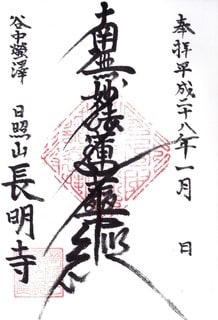 奉拝平成二十八年一月 日
南無妙法蓮華経
日照山長明寺
谷中螢澤